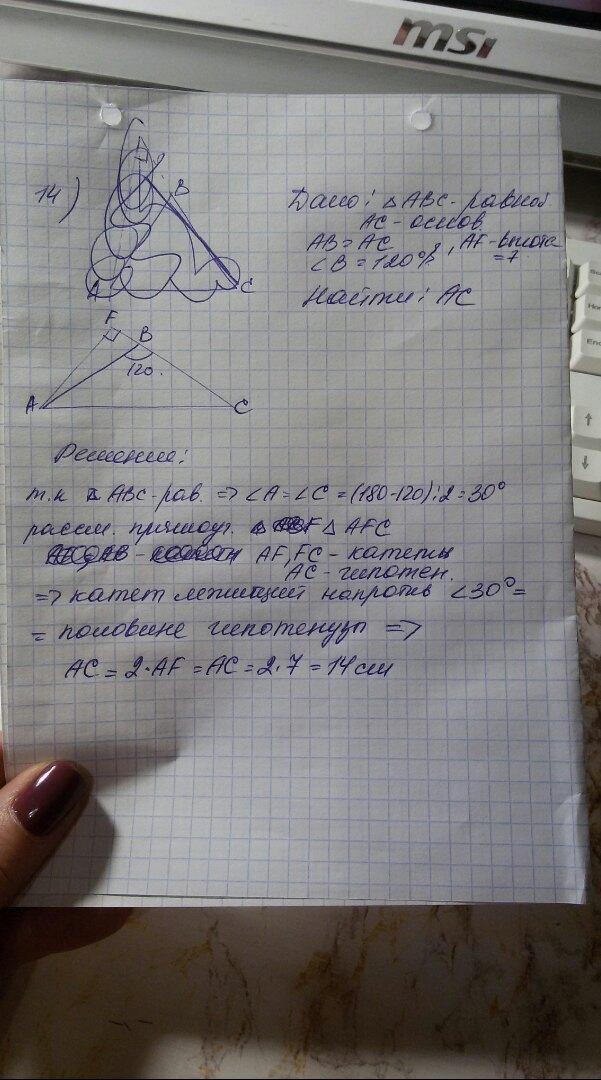 msi
14)
B
A
C
Дано: △ABC - равноб
AC - основ.
AB = AC , AF - высота
∠B = 120° = 7
Найти: AC
F
B
120.
A
C
Решение:
т.к △ABC - рав. => ∠A = ∠C = (180-120):2 = 30°
рассм. прямоуг. △AFC
AF, FC - катеты
AC - гипотен.
=> катет лежащий напротив ∠30° =
= половине гипотенузы =>
AC = 2·AF = AC = 2·7 = 14 см